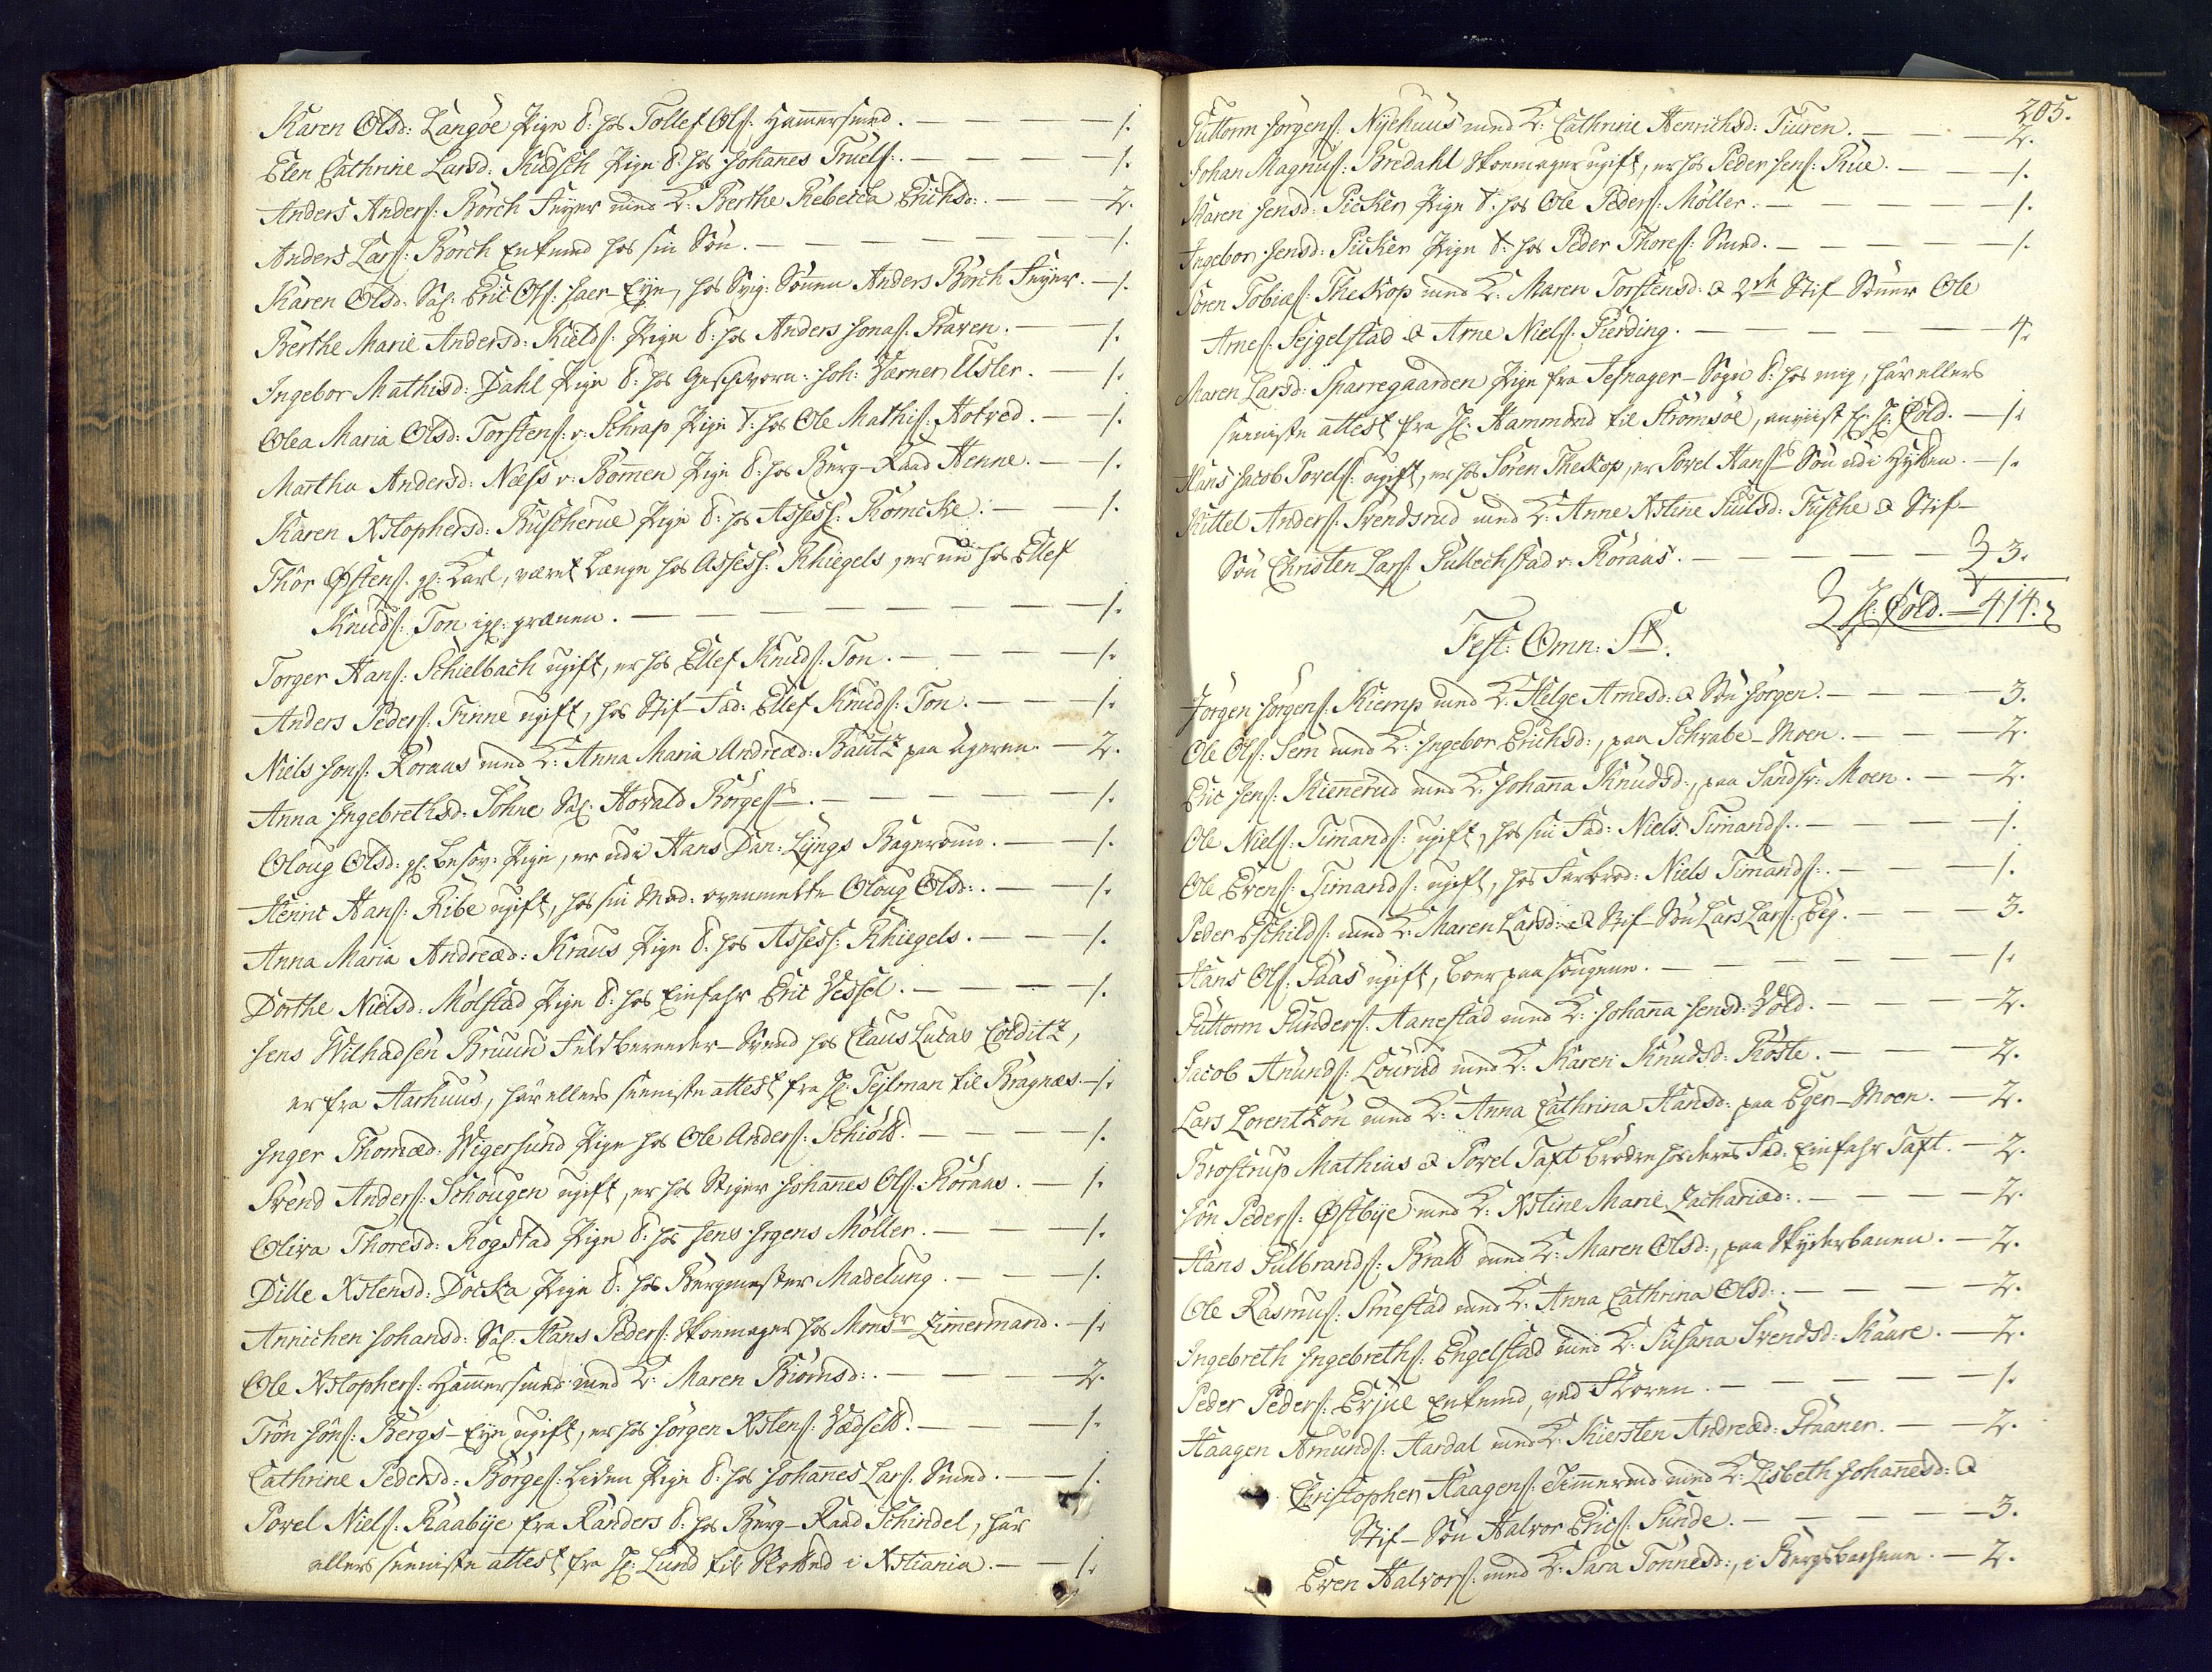 Karen Olsd: Langöe Pige T: hos Tollef Ols: Hammersmed. — 1.
Elen Cathrine Larsd: Kudsch Pige T: hos Johanes Truels: — 1.
Anders Anders: Borch Feyer med K: Berthe Rebecca Erichsd: — 2.
Anders Lars: Borch Enkemd hos sin Søn. — 1.
Karen Olsd: Sal: Eric Ols: Saer-Eye, hos Svig: Sönnen Anders Borch Feyer. — 1.
Berthe Marie Andersd: Kields: Pige T: hos Anders Jonas: Raven. — 1.
Ingebor Mathisd: Dahl Pige T: hos Geschworn: Joh: Værner Usler. — 1.
Olea Maria Olsd: Torstens: v: Schrap Pige T: hos Ole Mathis: Hotved. — 1.
Martha Andersd: Næss v: Bomen Pige T: hos Berg-Raad Henne. — 1.
Karen Xstophersd: Buscherue Pige T: hos Assess: Römcke: — 1.
Thor Østens: gl: Karl, været længe hos Assess: Khiegels, er nu hos Ellef
Knuds: Ton igl: grænen. — 1.
Torger Hans: Schielbach ugift, er hos Ellef Knuds: Ton. — 1.
Anders Peders: Finne ugift, hos Stif-Fad: Ellef Knuds: Ton. — 1.
Niels Jons: Roraas med K: Anna Maria Andreæd: Bautz paa Ageren. — 2.
Anna Ingebrethsd: Töhne Sal: Hovald Börges: — 1.
Oloug Olsd: gl: besov: Pige, er udi Hans Dan: Lyngs Bageromd. — 1.
Henric Hans: Ribe ugift, hos sin Mod: ovenmelte Oloug Olsd: — 1.
Anna Maria Andreæd: Kraus Pige T: hos Assess: Khiegels. — 1.
Dorthe Nielsd: Molstad Pige T: hos Einfahr Eric Vessel. — 1.
Jens Wilhadsen Bruun Feldbereder-Svend hos Claus Lucas Colditz,
er fra Aarhuus, har ellers seeniste attest fra Hr: Tejlman til Bragnæs. — 1.
Inger Thomæd: Wigersund Pige hos Ole Anders: Schiött. — 1.
Svend Anders: Schougen ugift, er hos Stiger Johanes Ols: Roraas. — 1.
Oliva Thoresd: Rogstad Pige T: hos Jens Jrgens Möller. — 1.
Dille Xstensd: Docka Pige T: hos Bergmester Madelung. — 1.
Annichen Johansd: Sal: Hans Peders: Skomager hos Monsr Zimermand. — 1.
Ole Xstophers: Hamersmed med K: Maren Biörnsd: — 2.
Trön Jöns: Bergs-Eye ugift, er hos Jörgen Xstens: Vedselt. — 1.
Cathrine Pedersd: Börges: Liden Pige T: hos Johanes Lars: Smed. — 1.
Povel Niels: Raabye fra Randers T: hos Berg-Raad Schindel, har
ellers seeniste attest fra Hr: Lund til Slottet i Xstiania. — 1.
205.
Guttorm Jörgens: Nyehuus med K: Cathrine Henrichsd: Fuuren. — 2.
Johan Magnus: Bredahl Skomager ugift, er hos Peder Jens: Rue. — 1.
Karen Jensd: Picken Pige T: hos Ole Peders: Möller. — 1.
Ingebor Jensd: Picken Pige T: hos Peder Thores: Smed. — 1.
Sören Tobias: Theskop med K: Maren Torstensd: & 2de Stif-Sönner Ole
Arnes: Sejgelstad & Arne Niels: Fierding. — 4.
Maren Larsd: Sparregaarden Pige fra Jefnager-Sogn T: hos mig, har ellers
seeniste attest fra Hr: Hammond til Strömsöe, anviist f: Hr: Cold. — 1.
Hans Jacob Povels: ugift, er hos Sören Theskop, er Povel Hans: Søn udi Hytten. — 1.
Kittel Anders: Svendsrud med K: Anne Xstine Juulsd: Fusche & Stif-
Søn Christen Lars: Gullichstad v: Roraas. — 3.
Hr: Cold. — 414.
Fest: Omn: SS:
Jörgen Jörgens: Kiemp med K: Helge Arnesd: & Søn Jörgen. — 3.
Ole Ols: Sem med K: Ingebor Erichsd:, paa Schrabe-Moen. — 2.
Eric Jens: Kiennerud med K: Johanna Knudsd:, paa Sandsv: Moen. — 2.
Ole Niels: Timands: ugift, hos sin Fad: Niels Timands: — 1.
Ole Evens: Timands: ugift, hos Farbrod: Niels Timands: — 1.
Peder Eschilds: med K: Maren Larsd: & Stif-Søn Lars Lars: Eeg. — 3.
Hans Ols: Faas ugift, boer paa Hougene. — 1.
Guttorm Gunders: Aanestad med K: Johanna Jensd: Vold. — 2.
Jacob Anunds: Löurud med K: Karen Knudsd: Röste. — 2.
Lars Lorentzön med K: Anna Cathrina Hansd: paa Eger-Moen. — 2.
Brostrup Mathias & Povel Taft brödre hos deres Fad: Einfahr Taft. — 2.
Jon Peders: Østbye med K: Xstine Marie Zachariæd: — 2.
Hans Gulbrands: Bratt med K: Maren Olsd:, paa Skyderbanen. — 2.
Ole Rasmus: Smestad med K: Anna Cathrina Olsd: — 2.
Ingebreth Ingebreths: Engelstad med K: Susana Svendsd: Skaare. — 2.
Peder Peders: Erjue Enkemd, ved Skoren. — 1.
Haagen Amunds: Aardal med K: Kiersten Andreæd: Skaaner. — 2.
Christopher Haagens: Timmermd med K: Lisbeth Johanesd: &
Stif-Søn Halvor Erics: Funde. — 3.
Even Halvors: med K: Sara Tönnesd:, i Bergsbachene. — 2.